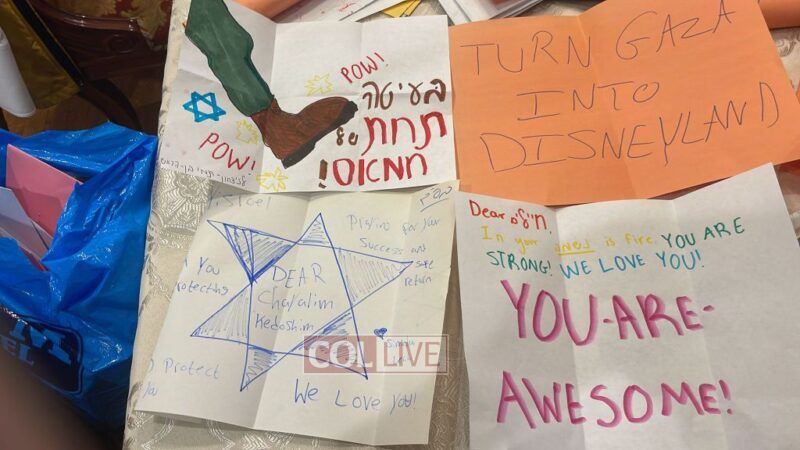 POW!
POW!
בעיטה
תחת של
חמאס!
TURN GAZA
INTO
DISNEYLAND
Israel
You
protecting
Protect
DEAR
Chayalim
Kedoshim
for your
Success and
safe
return
We Love You!
COL LIVE
Dear חיילים,
In your is fire. YOU ARE
STRONG! WE LOVE YOU!
YOU-ARE-
AWESOME!
EL